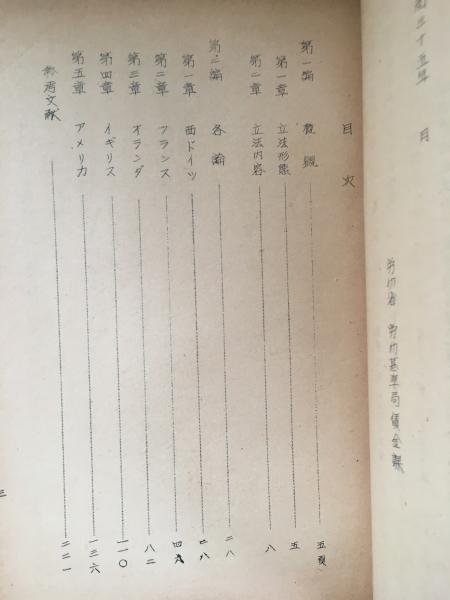 目次
第一編 概観 五頁
第一章 立法形態 五
第二章 立法内容 八
第二編 各論 二八
第一章 西ドイツ 二八
第二章 フランス 四九
第三章 オランダ 八二
第四章 イギリス 一一〇
第五章 アメリカ 一三六
参考文献 二二一
三
月
労働省 労働基準局賃金課